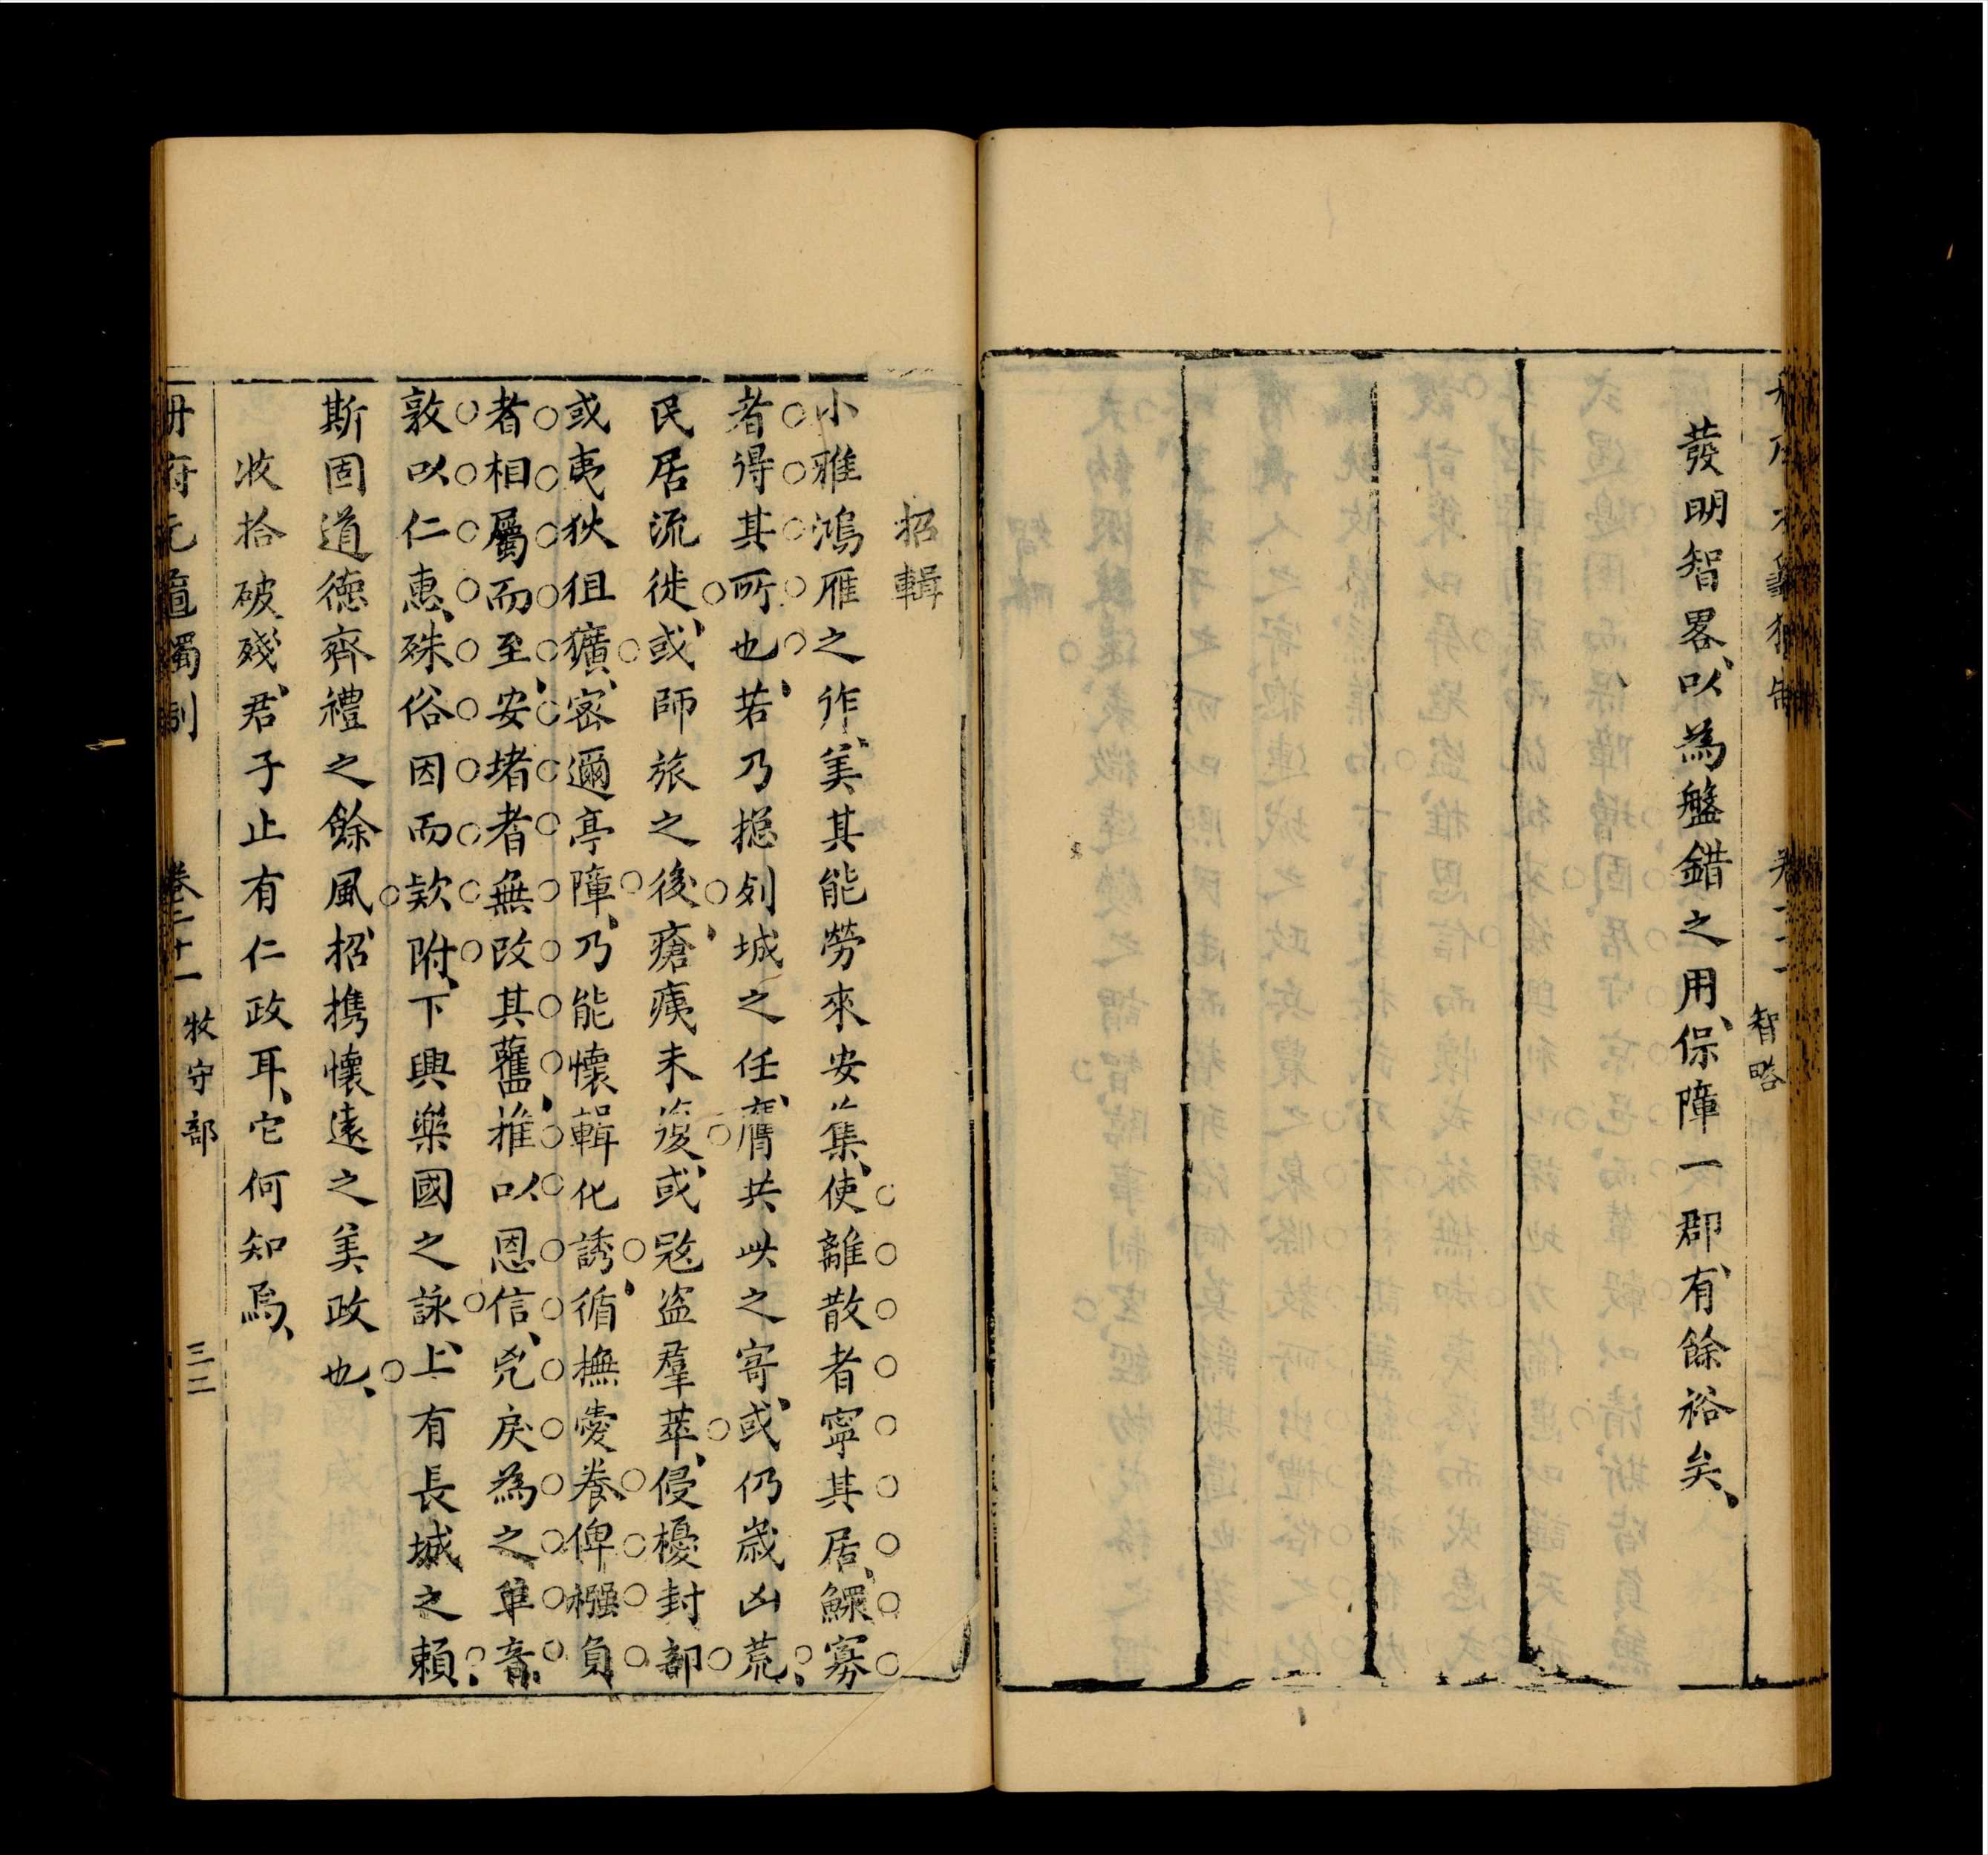 智略
發明智畧以為盤錯之用、保障一郡、有餘裕矣、
招輯
小雅鴻雁之作、美其能勞來安集、使離散者寧其居、鰥寡
者得其所也、若乃揔列城之任、膺共此之寄、或仍歲凶荒、
民居流徙、或師旅之後、瘡痍未復、或宼盜羣萃、侵擾封部
或夷狄狙獷、密邇亭障、乃能懷輯化誘、循撫愛養、俾襁負
者相屬而至、安堵者無改其舊、推以恩信、兇戾為之革音、
敦以仁惠、殊俗因而欵附、下興樂國之詠、上有長城之賴、
斯固道德齊禮之餘風、招携懷遠之美政也、
收拾破殘、君子止有仁政耳、它何知焉、
冊府元龜獨制 卷二十一 牧守部 三二